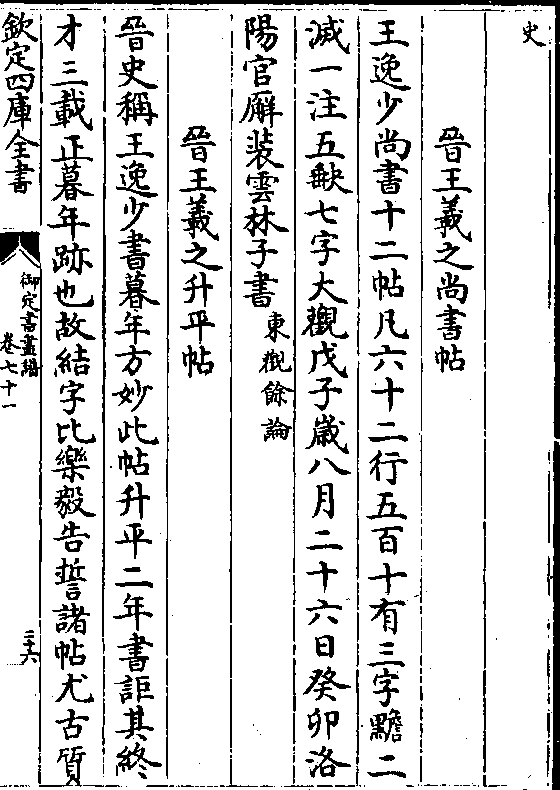 史
晉王羲之尚書帖
王逸少尚書十二帖凡六十二行五百十有三字黵二
滅一注五缺七字大觀戊子歲八月二十六日癸卯洛
陽官廨裝雲林子書東觀餘論
晉王羲之升平帖
晉史稱王逸少書暮年方妙此帖升平二年書距其終
才三載正暮年跡也故結字比樂毅告誓諸帖尤古質
欽定四庫全書
御定書畫譜
卷七十一
三十六